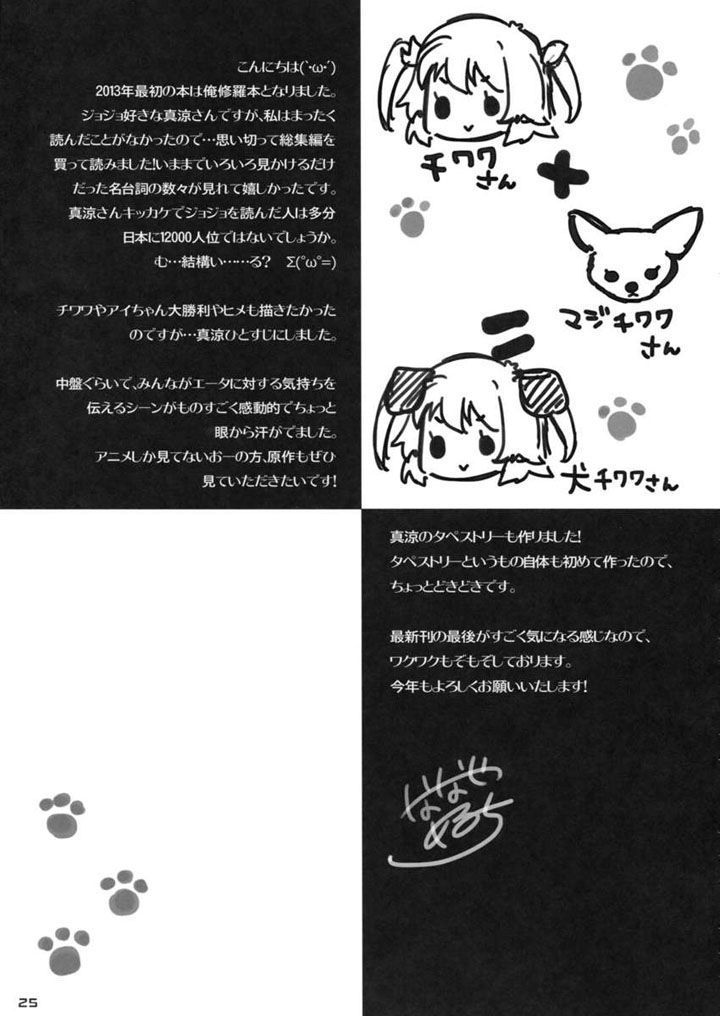 こんにちは(`･ω･´)
2013年最初の本は俺修羅本となりました。
ジョジョ好きな真涼さんですが、私はまったく
読んだことがなかったので…思い切って総集編を
買って読みました!いままでいろいろ見かけるだけ
だった名台詞の数々が見れて嬉しかったです。
真涼さんキッカケでジョジョを読んだ人は多分
日本に12000人位ではないでしょうか。
む…結構い……る? Σ(°ω°=)
チワワやアイちゃん大勝利やヒメも描きたかった
のですが…真涼ひとすじにしました。
中盤ぐらいで、みんながエータに対する気持ちを
伝えるシーンがものすごく感動的でちょっと
眼から汗がでました。
アニメしか見てないおーの方、原作もぜひ
見ていただきたいです!
チワワ
さん
+
マジチワワ
さん
=
犬チワワさん
真涼のタペストリーも作りました!
タペストリーというもの自体も初めて作ったので、
ちょっとどきどきです。
最新刊の最後がすごく気になる感じなので、
ワクワクもぞもぞしております。
今年もよろしくお願いいたします!
ななや
めるち
25